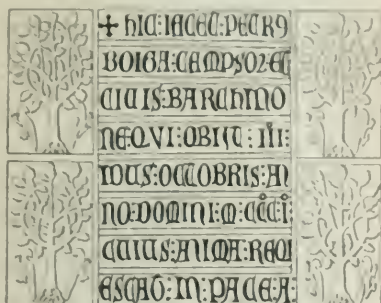 ✠ HIC: IACET: PETRꝰ
BOIGA: CAMPSOR ET
CIUIS: BARCHINO
NE QVI: OBIIT: III:
IDUS: OCTOBRIS: AN
NO: DOMINI: M: CCC: I:
CUIUS: ANIMA: REQI
ESCAT: IN: PACE: A: